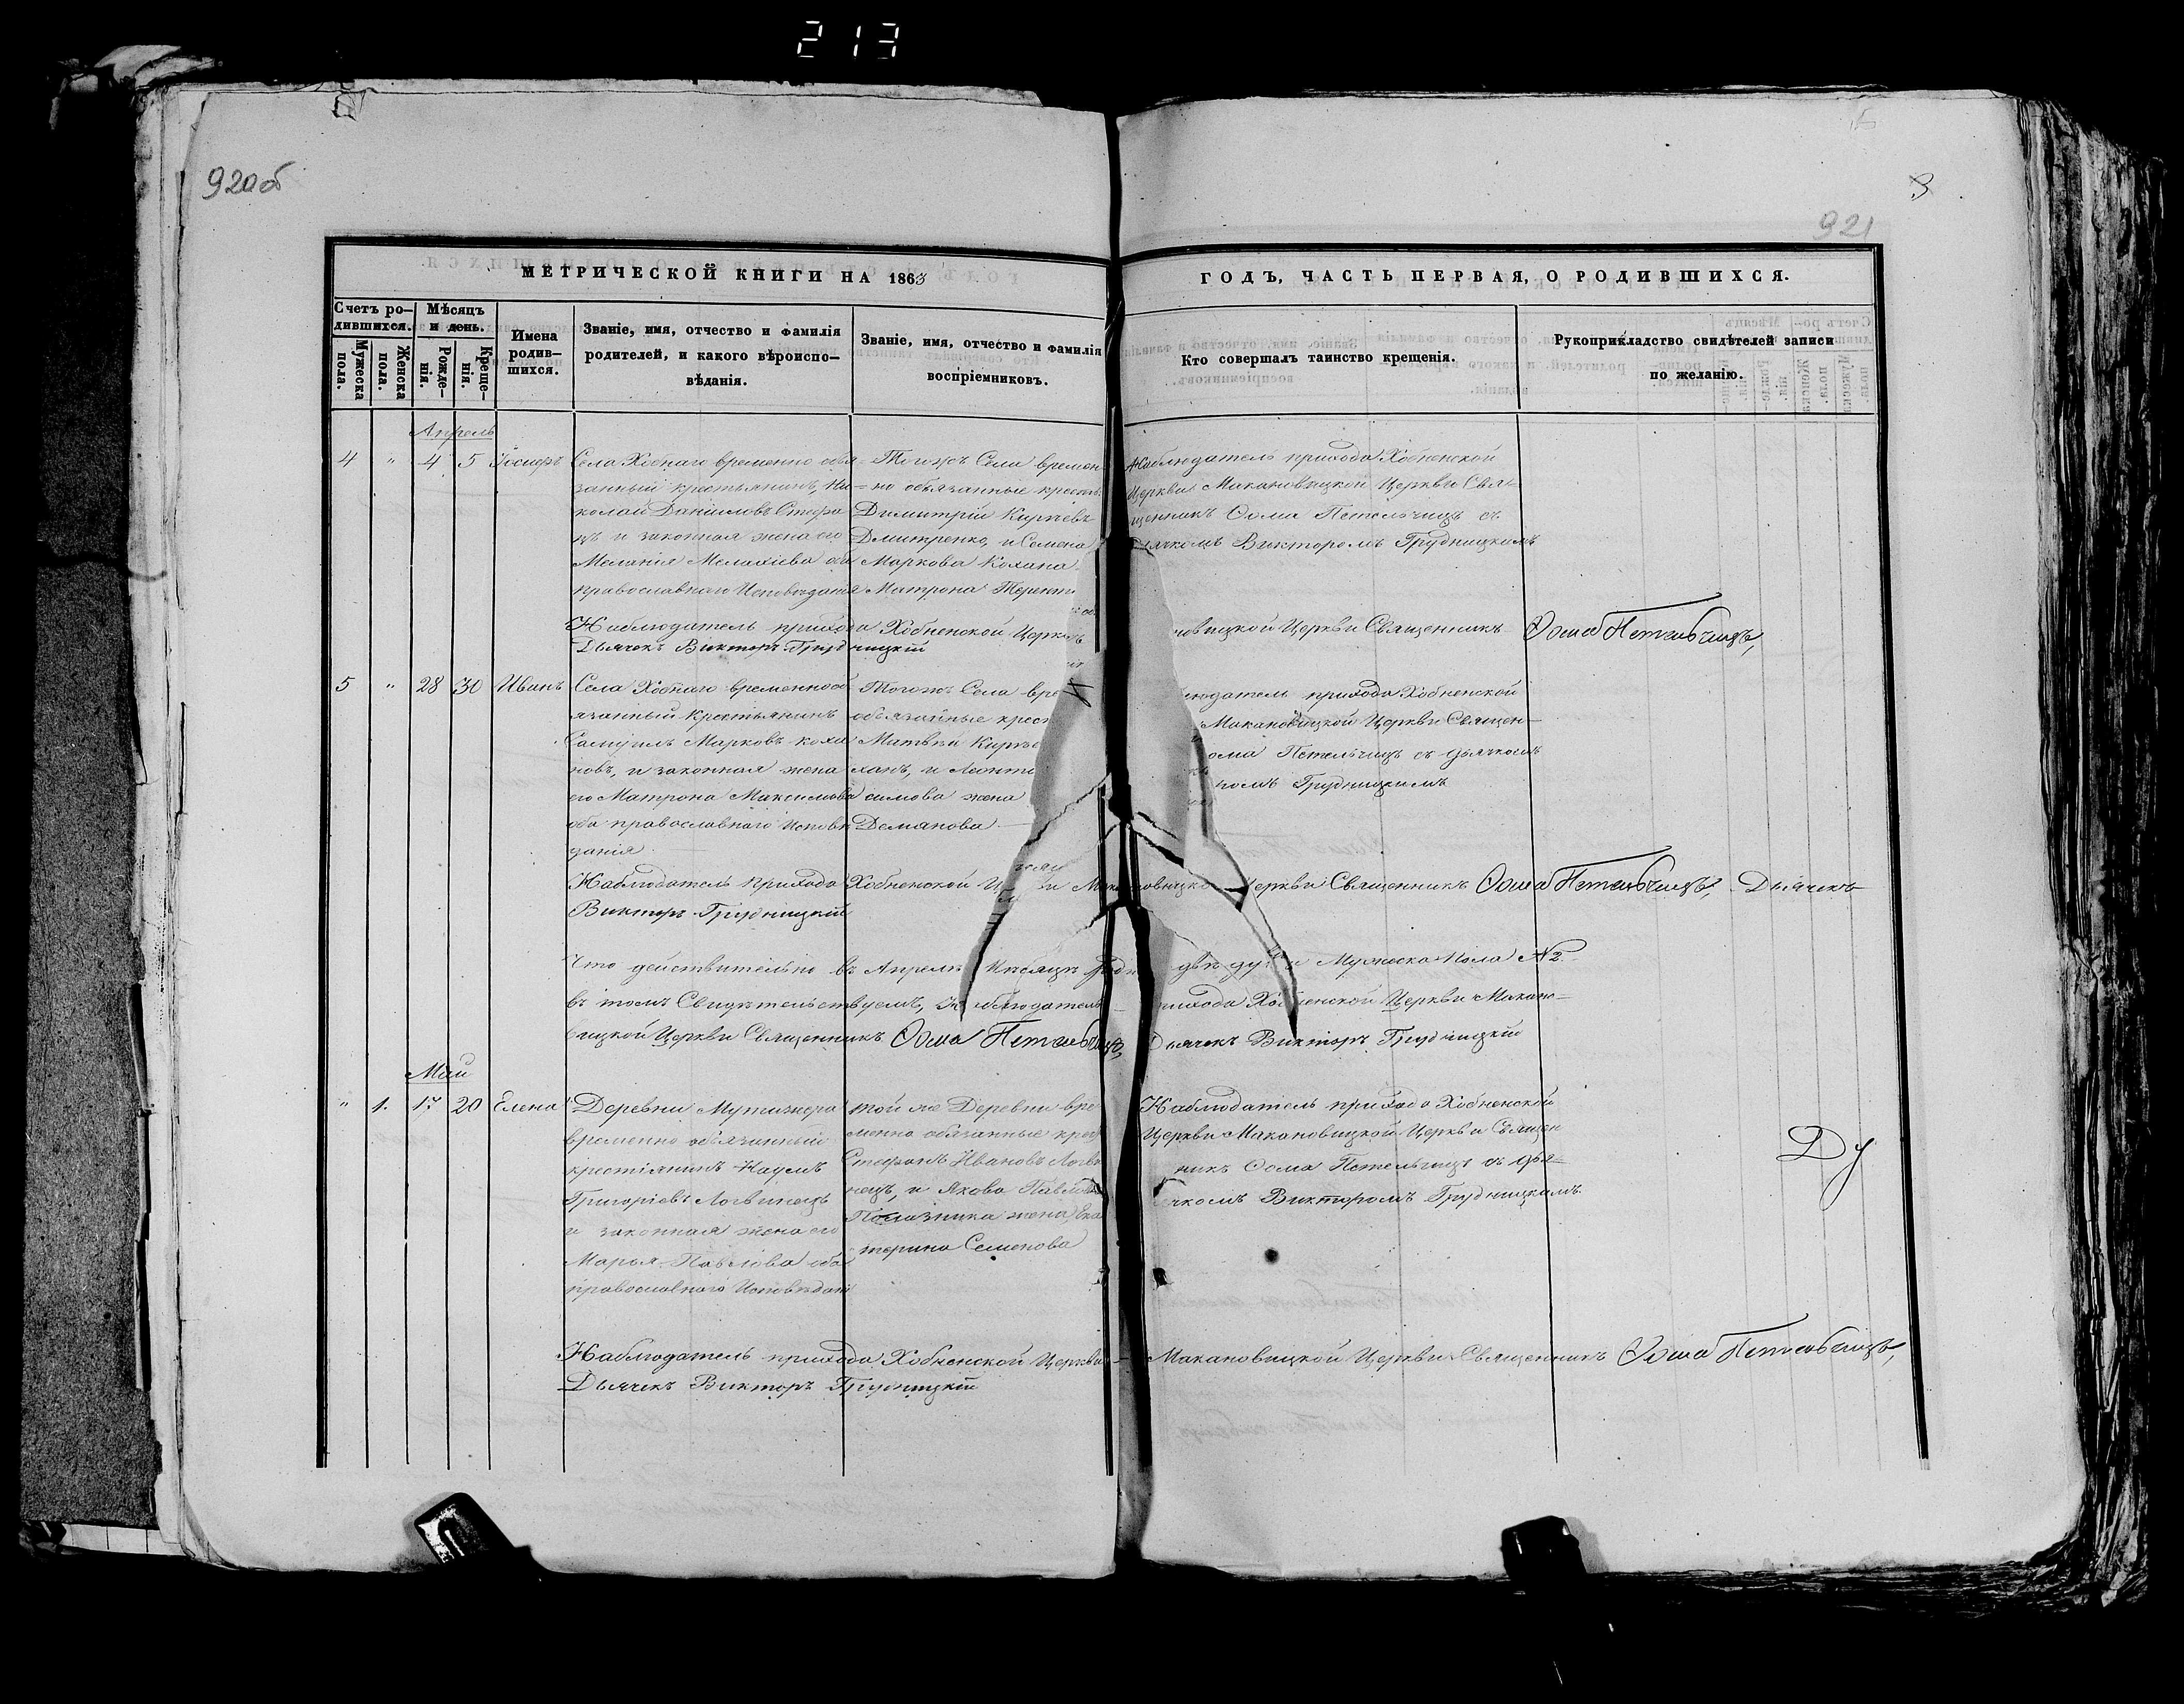 213
920об
3
921
МЕТРИЧЕСКОЙ КНИГИ НА 1863
ГОДЪ, ЧАСТЬ ПЕРВАЯ, О РОДИВШИХСЯ.
Счетъ ро-
дившихся.
Мужеска
пола.
Женска
пола.
Мѣсяцъ
и день.
Рожде-
нія.
Креще-
нія.
Имена
родив-
шихся.
Званіе, имя, отчество и фамилія
родителей, и какого вѣроиспо-
вѣданія.
Званіе, имя, отчество и фамилія
воспріемниковъ.
Кто совершалъ таинство крещенія.
Рукоприкладство свидѣтелей записи
по желанію.
Апрель
4 " 4 5
Села Хобнаго временно обя-
занный крестьянинъ, Ни-
колай Даніиловъ
и законная жена его
Меланія оба
православнаго Исповѣданія
Тогожъ Села времен-
но обязанные крест
Димитрій Киріевъ
Дмитренко, и Семена
Маркова Кохана
Матрона Терент
Наблюдатель прихода Хобненской
Церкви Макановицкой Церкви Свя-
щенникъ Ѳома Петельчицъ съ
Дьячкомъ Викторомъ Грудницкимъ
Наблюдатель прихода Хобненской Церкви новицкой Церкви Священникъ Ѳома Петельчицъ,
Дьячекъ Викторъ Грудницкій
5 " 28 30 Иванъ
Села Хобнаго временнооб
язанный Крестьянинъ
Самуилъ Марковъ Коха
новъ, и законная жена
его Матрона Максимова
оба православнаго Исповѣ
данія
Тогожъ Села вре
обязанные крест
Матвѣй Кирѣе
ханъ, и Леонті
симова жена
Демянова
юдатель прихода Хобненской
Макановицкой Церкви Священ-
ома Петельчицъ съ дьячкомъ
ромъ Грудницкимъ
Наблюдатель прихода Хобненской Церкви Священникъ Ѳома Петельчицъ, Дьячекъ
Викторъ Грудницкій
Что действительно въ Апрелѣ Мѣсяцѣ двѣ Мужеска Пола №2
въ томъ Свидѣтельствуемъ, Наблюдатель прихода Хобненской Церкви Макано-
вицкой Церкви Священникъ Ѳома Петельчицъ, Дьячекъ Викторъ Грудницкій
Май
" 1. 17 20 Елена
Деревни Мутижера
временно обязанный
крестьянинъ Наумъ
Григоріевъ Логвинецъ
и законная жена его
Марья Павлова оба
православнаго Исповѣдані
той же Деревни вре
менно обязанные крес
Стефанъ Ивановъ Логви
нецъ, и Якова Павлова
жена Ека
терина Семенова
Наблюдатель прихода Хобненской
Церкви Макановицкой Церкви Священ
никъ Ѳома Петельчицъ съ дья-
чкомъ Викторомъ Грудницкимъ
Ду
Наблюдатель прихода Хобненской Церкви Макановицкой Церкви Священникъ Ѳома Петельчицъ,
Дьячекъ Викторъ Грудницкій